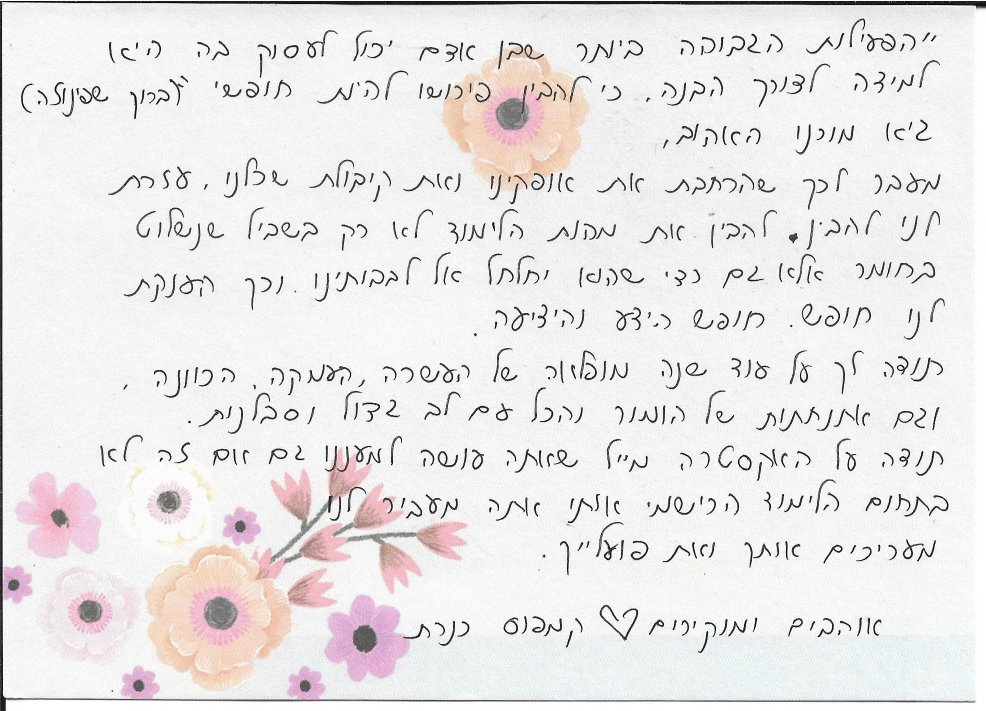 "הפעילות הגבוהה ביותר שבן אדם יכול לעסוק בה היא
למידה לצורך הבנה, כי להבין פירושו להיות חופשי" (ברוך שפינוזה)
גיא מורנו האהוב,
מעבר לכך שהרחבת את אופקינו ואת קיבולת שכלנו, עזרת
לנו להבין. להבין את מהות הלימוד לא רק בשביל שנשלוט
בחומר אלא גם כדי שהוא יחלחל אל לבבותינו. וכך הענקת
לנו חופש. חופש הידע והיציעה.
תודה לך על עוד שנה מופלאה של העשרה, העמקה, הכוונה,
וגם אתנחתות של הומור והכל עם לב גדול וסבלנות.
תודה על האקסטרה מייל שאתה עושה למעננו גם אם זה לא
בתחום הלימוד הרישמי אותו אתה מעביר לנו
מעריכים אותך ואת פועלייך.
אוהבים ומוקירים ♡ קמפוס כנרת